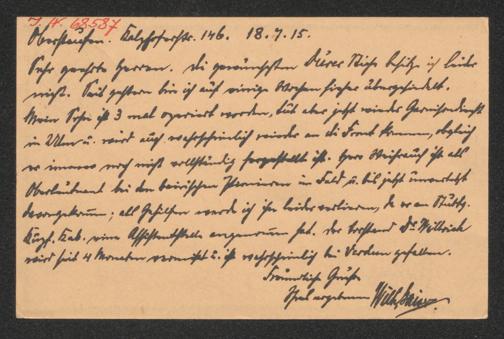 J. N. 63587
Oberstaufen. Kalzhoferstr. 146. 18.7.15.
Sehr geehrte Herren. Die gewünschten Dürer Stiche besitze ich leider
nicht. Seit gestern bin ich auf einige Wochen hieher übergesiedelt.
Mein Sohn ist 3 mal operiert worden, tut aber jetzt wieder Garnisondienst
in Ulm u. wird auch wahrscheinlich wieder an die Front kommen, obgleich
er immer noch nicht vollständig hergestellt ist. Herr Weihrauch ist als
Oberleutnant bei den bairischen Pionieren im Feld u. bis jetzt unverletzt
davongekommen; als Gehilfen werde ich ihn leider verlieren, da er am Stuttg.
Kupf. Kab. eine Assistentstelle angenommen hat. Der Vorstand Dr Willrich
wird seit 4 Monaten vermisst u. ist wahrscheinlich bei Verdun gefallen.
Freundliche Grüsse
Ihres ergebenen